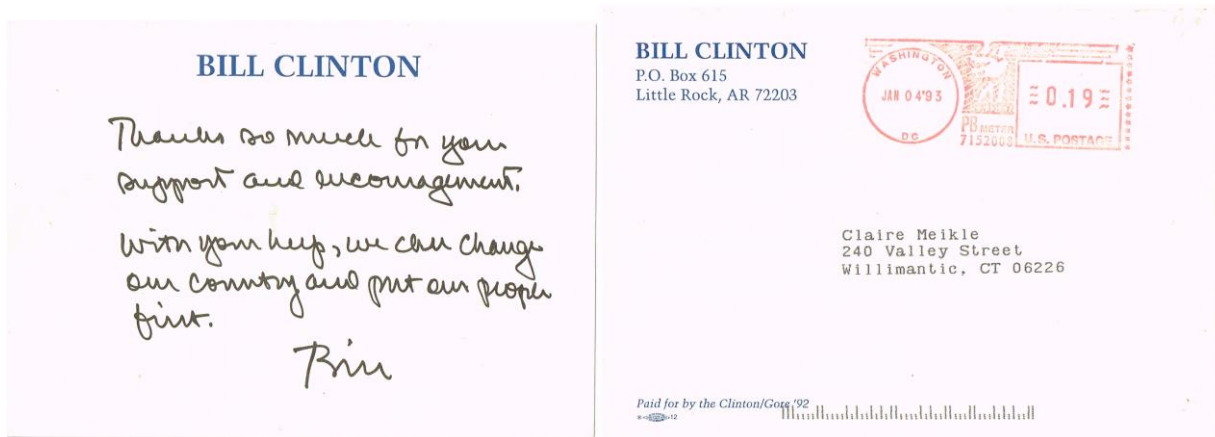 BILL CLINTON
Thanks so much for your
support and encouragement.
With your help, we can change
our country and put our people
first.
Bill
BILL CLINTON
P.O. Box 615
Little Rock, AR 72203
WASHINGTON
JAN 04'93
DC
PB METER
7152008
0.19
U.S. POSTAGE
Claire Meikle
240 Valley Street
Willimantic, CT 06226
Paid for by the Clinton/Gore '92
12